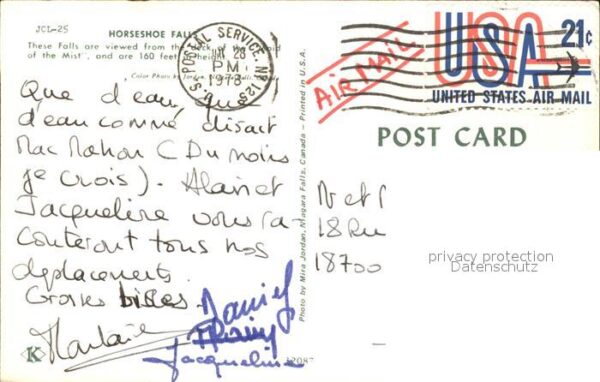 JCL-25
HORSESHOE FALLS
These Falls are viewed from the deck of the Maid
of the Mist and are 160 feet in height
Color Photo by Jordan, Niagara Falls, Canada
U.S. POSTAL SERVICE, N.Y.
28
PM
1978
AIR MAIL
USA 21c
UNITED STATES AIR MAIL
POST CARD
Que d'eau, que
d'eau comme disait
Mac Mahon (Du moins
je crois). Alain et
Jacqueline vous ra-
conteront tous nos
deplacements.
Grosses bises.
Daniel
Thierry
Jacqueline
K
Photo by Mira Jordan, Niagara Falls, Canada — Printed in U.S.A.
18 Ru
18700
privacy protection
Datenschutz